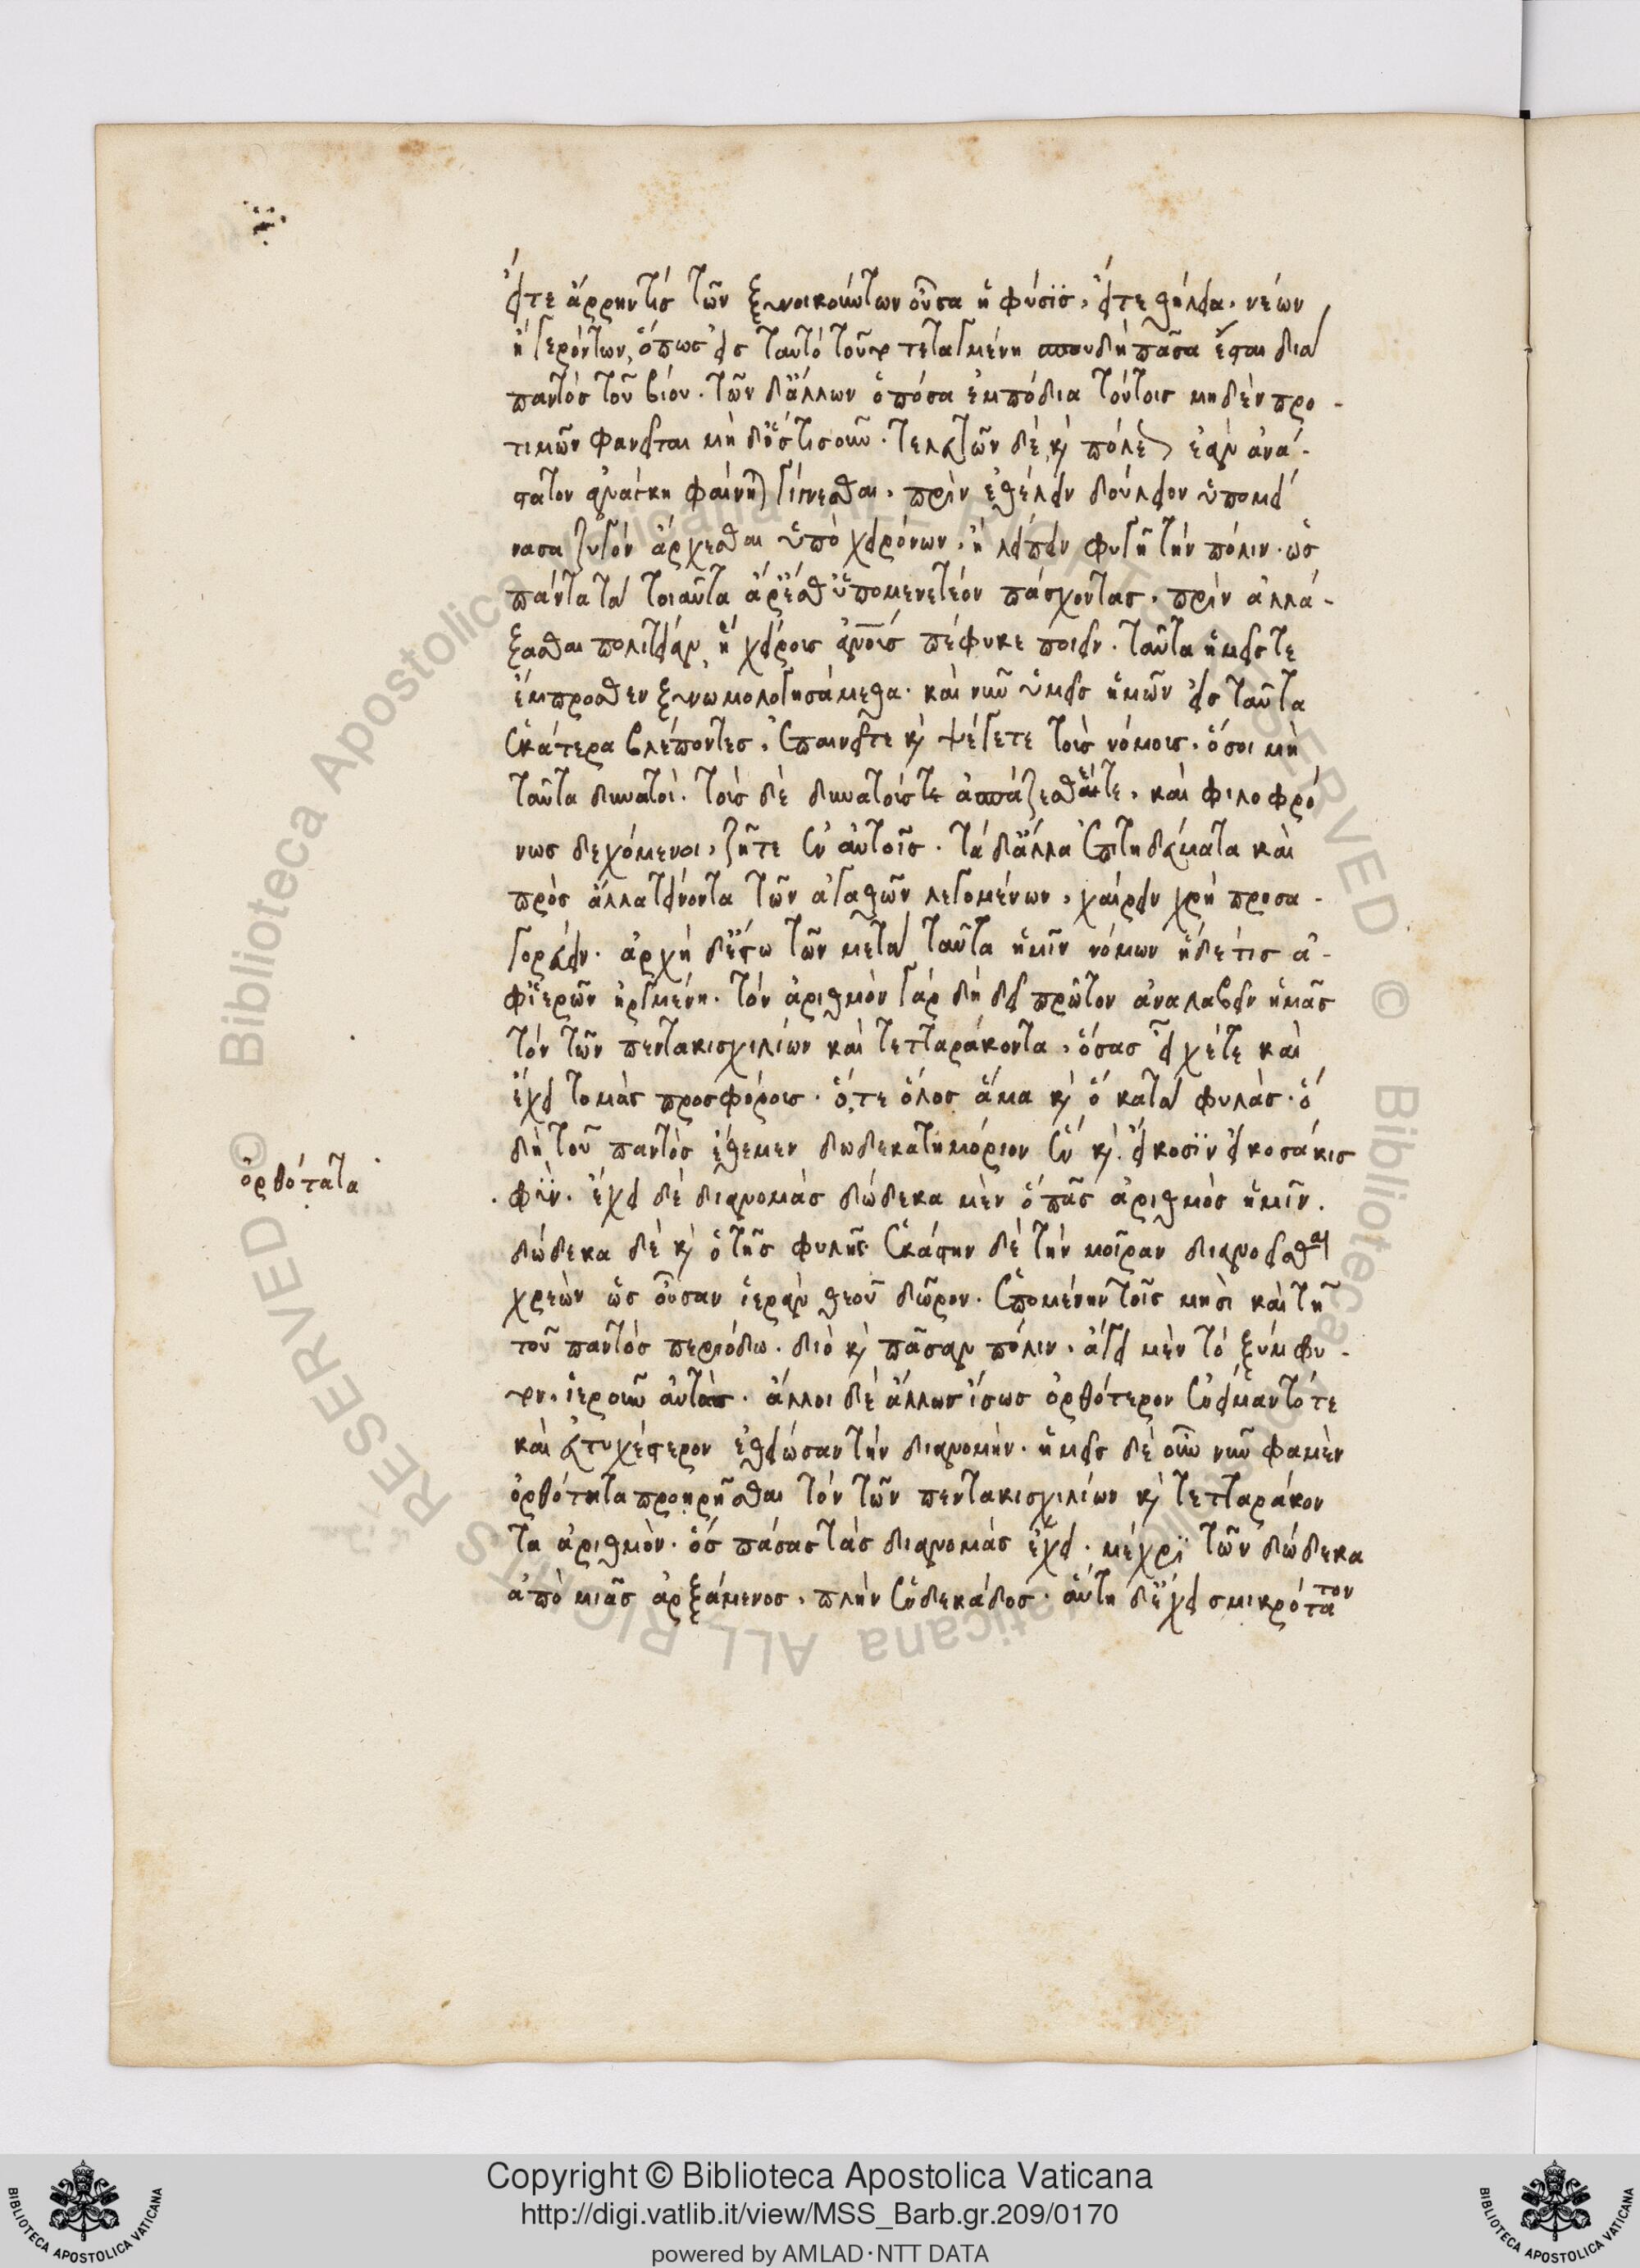 εἴτε ἄρρην τίς τῶν ξυνοικούντων οὖσα ἡ φύσις, εἴτε θήλεια, νέων
ἢ γερόντων, ὅπως εἰς ταυτὸ τοῦτο τεταγμένη σπουδὴ πᾶσα ἔσται διὰ
παντὸς τοῦ βίου. τῶν δ' ἄλλων ὁπόσα ἐμπόδια τούτοις μηδὲν προ-
τιμῶν φανεῖται μηδ' ὅστισοῦν. τελευτῶν δὲ, καὶ πόλεως ἐὰν ἀνά-
στατον ἀνάγκη φαίνηται γίγνεσθαι, πρὶν ἐθέλειν δούλειον ὑπομεί
νασα ζυγὸν ἄρχεσθαι ὑπὸ χειρόνων, ἢ λείπειν φυγῇ τὴν πόλιν. ὡς
πάντα τὰ τοιαῦτα ἄρ' ἔσθ' ὑπομενετέον πάσχοντας, πρὶν ἀλλά-
ξασθαι πολιτείαν, ἣ χείρους ἀνθρώπους πέφυκε ποιεῖν. ταῦτα ἡμεῖς τε
ἔμπροσθεν ξυνωμολογησάμεθα. καὶ νῦν ὑμεῖς ἡμῶν εἰς ταῦτα
ἑκάτερα βλέποντες, ἐπαινεῖτε καὶ ψέγετε τοὺς νόμους, ὅσοι μὴ
ταῦτα δυνατοὶ. τοὺς δὲ δυνατούς τε ἀσπάζεσθέ τε, καὶ φιλοφρό
νως δεχόμενοι, ζῆτε ἐν αὐτοῖς. τὰ δ' ἄλλα ἐπιτηδεύματα καὶ
πρὸς ἄλλα τείνοντα τῶν ἀγαθῶν λεγομένων, χαίρειν χρὴ προσα-
γορεύειν. ἀρχὴ δ' ἔστω τῶν μετὰ ταῦτα ἡμῖν νόμων ἥδέ τις ἀ-
φ' ἱερῶν ἠργμένη. τὸν ἀριθμὸν γὰρ δὴ δεῖ πρῶτον ἀναλαβεῖν ἡμᾶς
τὸν τῶν πεντακισχιλίων καὶ τετταράκοντα, ὅσας εἶχέ τε καὶ
ἔχει τομὰς προσφόρους. ὅ, τε ὅλος ἅμα καὶ ὁ κατὰ φυλὰς. ὃ
δὴ τοῦ παντὸς ἔθεμεν δωδεκατημόριον ἓν καὶ εἴκοσιν εἰκοσάκις
φὺν. ἔχει δὲ διανομὰς δώδεκα μὲν ὁ πᾶς ἀριθμὸς ἡμῖν.
δώδεκα δὲ καὶ ὁ τῆς φυλῆς. ἑκάστην δὲ τὴν μοῖραν διανοεῖσθαι
χρεὼν ὡς οὖσαν ἱερὰν θεοῦ δῶρον. ἑπομένην τοῖς μησὶ καὶ τῇ
τοῦ παντὸς περιόδῳ. διὸ καὶ πᾶσαν πόλιν, ἄγει μὲν τὸ ξύμφυ-
τον, ἱεροῦν αὐτάς. ἄλλοι δὲ ἄλλων ἴσως ὀρθότερον ἐνείμαντό τε
καὶ εὐτυχέστερον ἐθείωσαν τὴν διανομὴν. ἡμεῖς δὲ οὖν νῦν φαμὲν
ὀρθότητα προῃρῆσθαι τὸν τῶν πεντακισχιλίων καὶ τετταράκον
τα ἀριθμὸν. ὃς πάσας τὰς διανομὰς ἔχει. μέχρι τῶν δώδεκα
ἀπὸ μιᾶς ἀρξάμενος, πλὴν ἑνδεκάδος. αὕτη δ' ἔχει σμικρότατον
ὀρθότατα
Copyright © Biblioteca Apostolica Vaticana
http://digi.vatlib.it/view/MSS_Barb.gr.209/0170
powered by AMLAD·NTT DATA